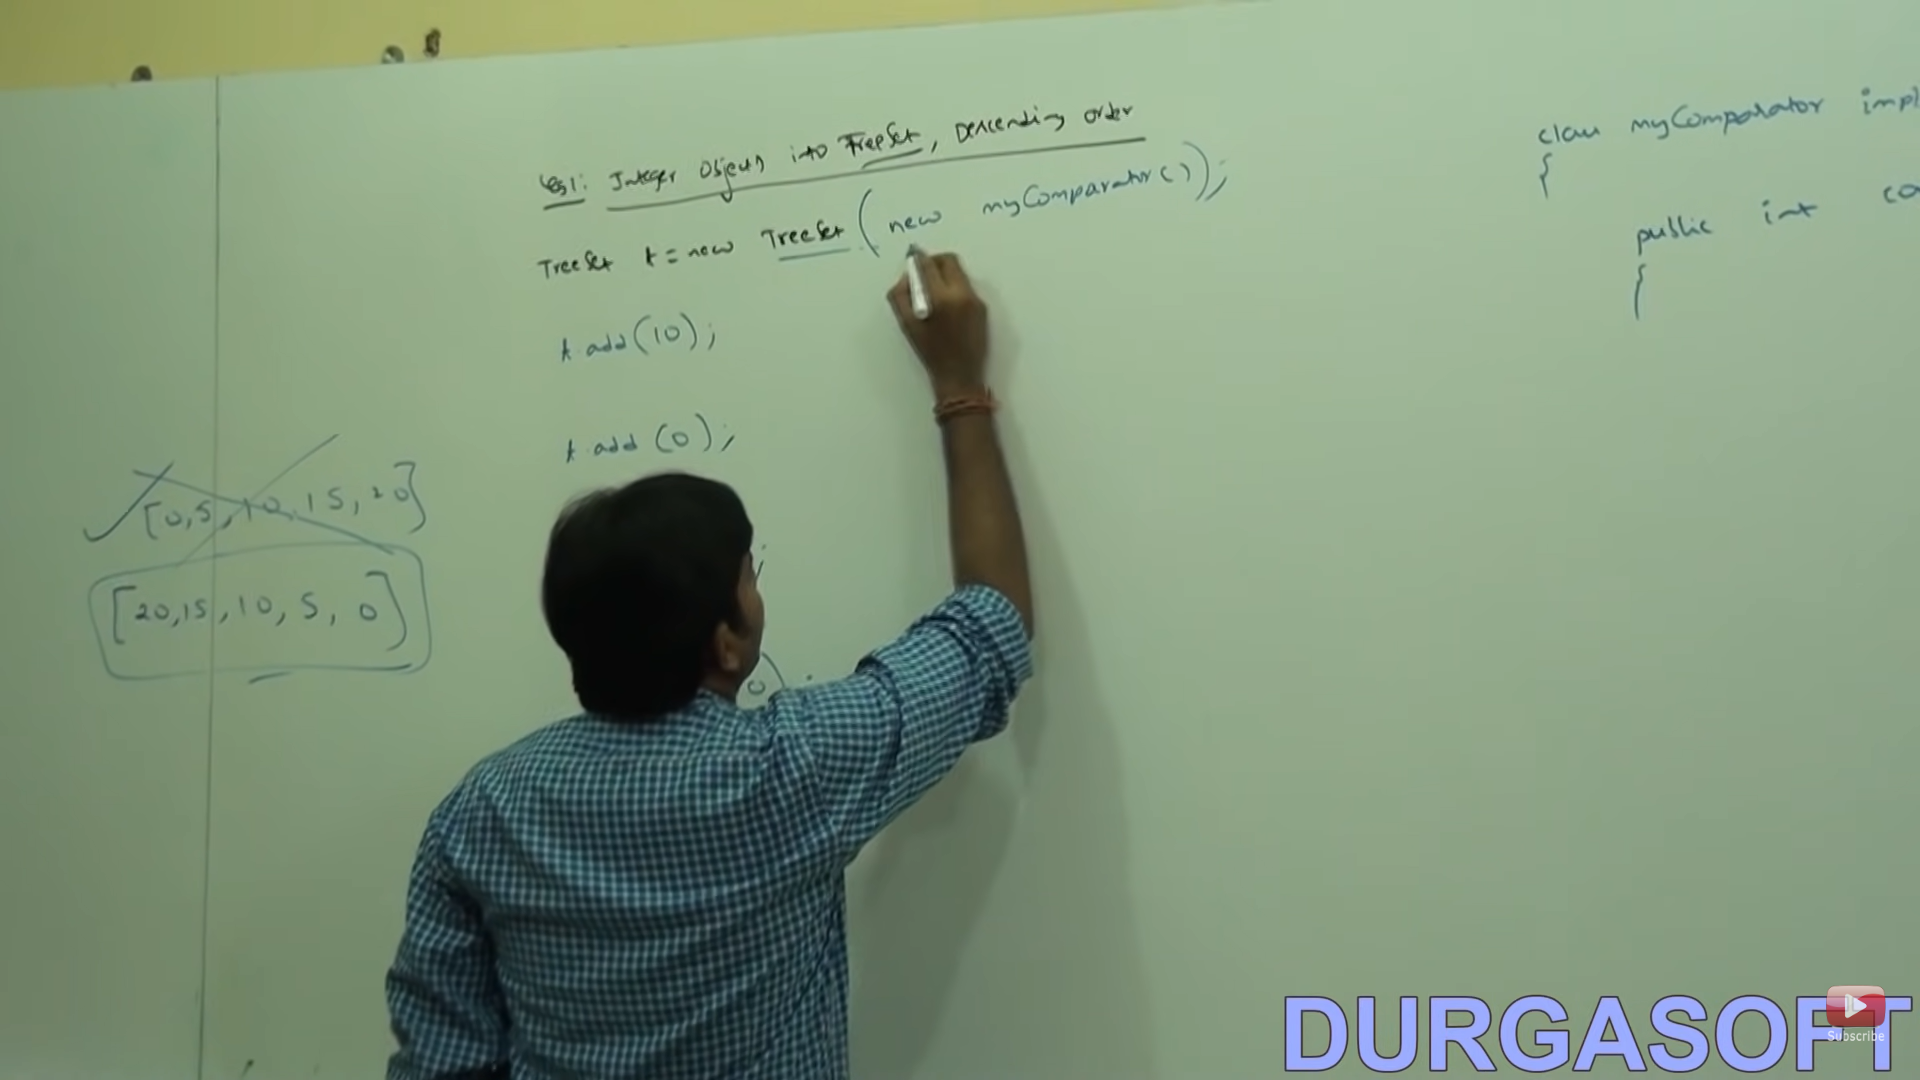 Eg1: Integer Objects into TreeSet, Descending order
TreeSet t = new TreeSet (new myComparator());
t.add(10);
t.add(0);
;
0) ;
[0,5,10,15,20]
[20,15,10,5,0]
class myComparator impl
{
public int co
{
DURGASOFT
Subscribe